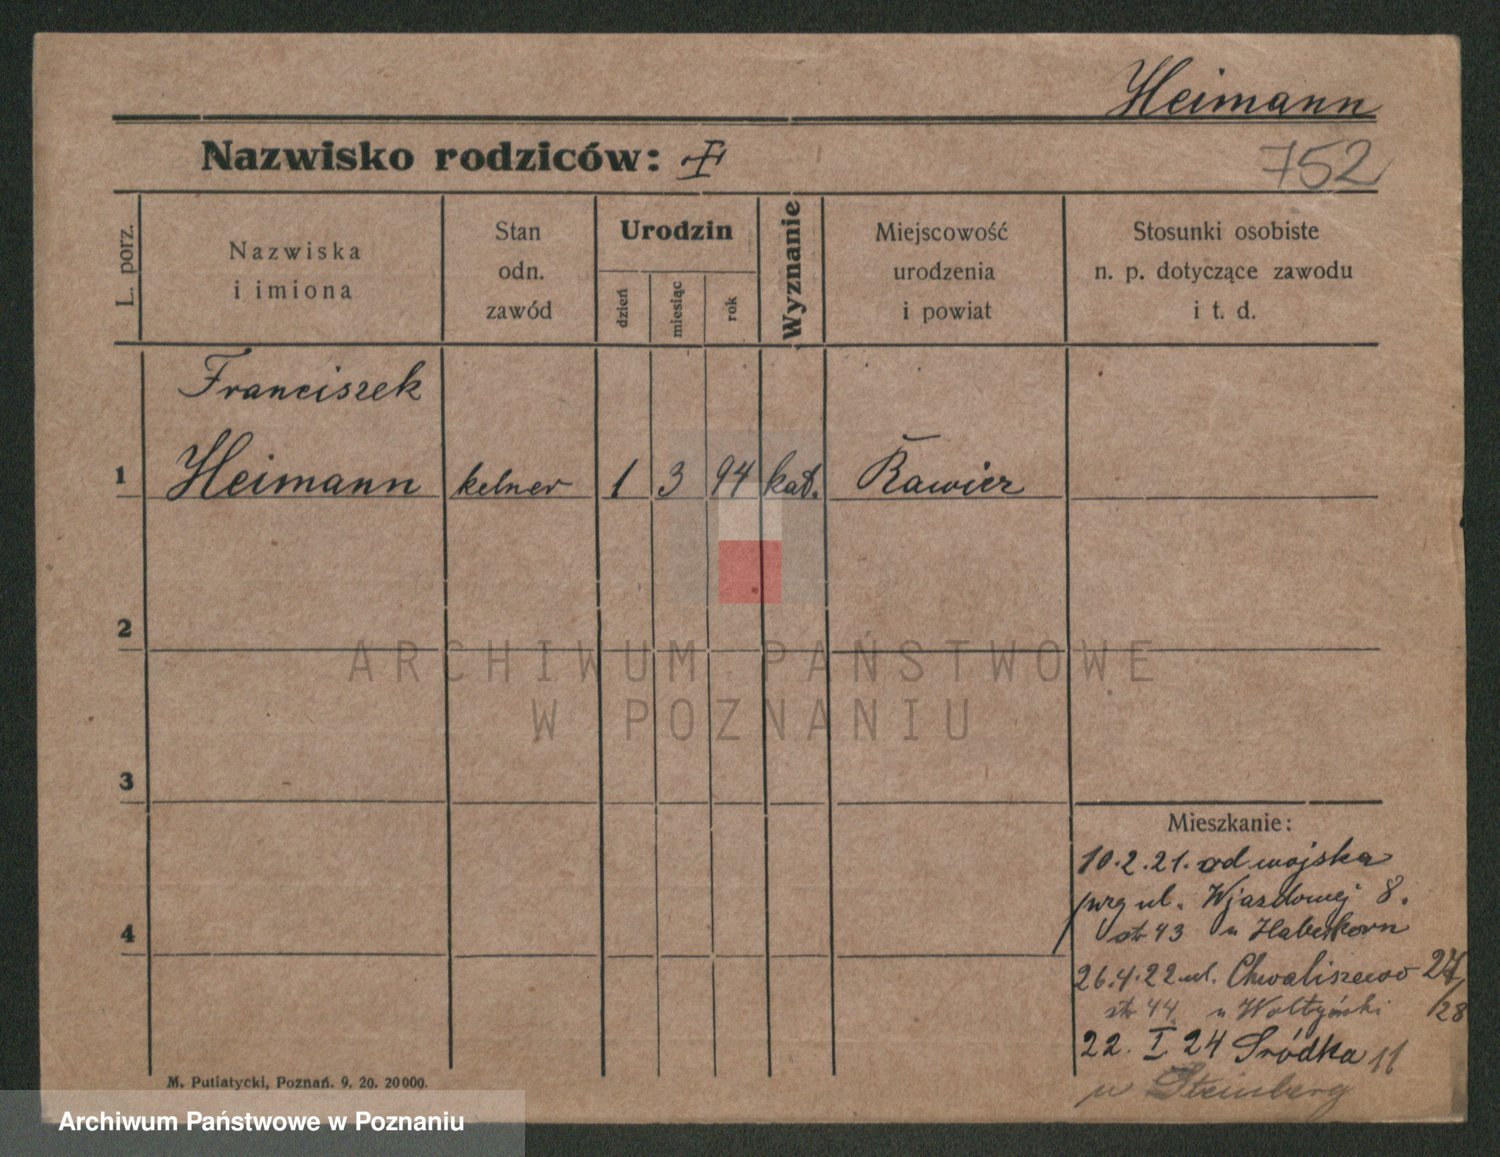 Heimann
Nazwisko rodziców:
752
L. porz.
Nazwiska
i imiona
Stan
odn.
zawód
Urodzin
dzień
miesiąc
rok
Wyznanie
Miejscowość
urodzenia
i powiat
Stosunki osobiste
n. p. dotyczące zawodu
i t. d.
Franciszek
1 Heimann kelner 1 3 94 kat. Rawicz
2
ARCHIWUM PAŃSTWOWE
W POZNANIU
3
Mieszkanie:
10.2.21. od wojska
przy ul. Wjazdowej 8.
4
str 43 u Haberkorn
26.4.22 ul. Chwaliszewo 27/28
str 44 u Wołyński
22. I 24 Śródka 11
u Steinberg
M. Putiatycki, Poznań. 9. 20. 20000.
Archiwum Państwowe w Poznaniu